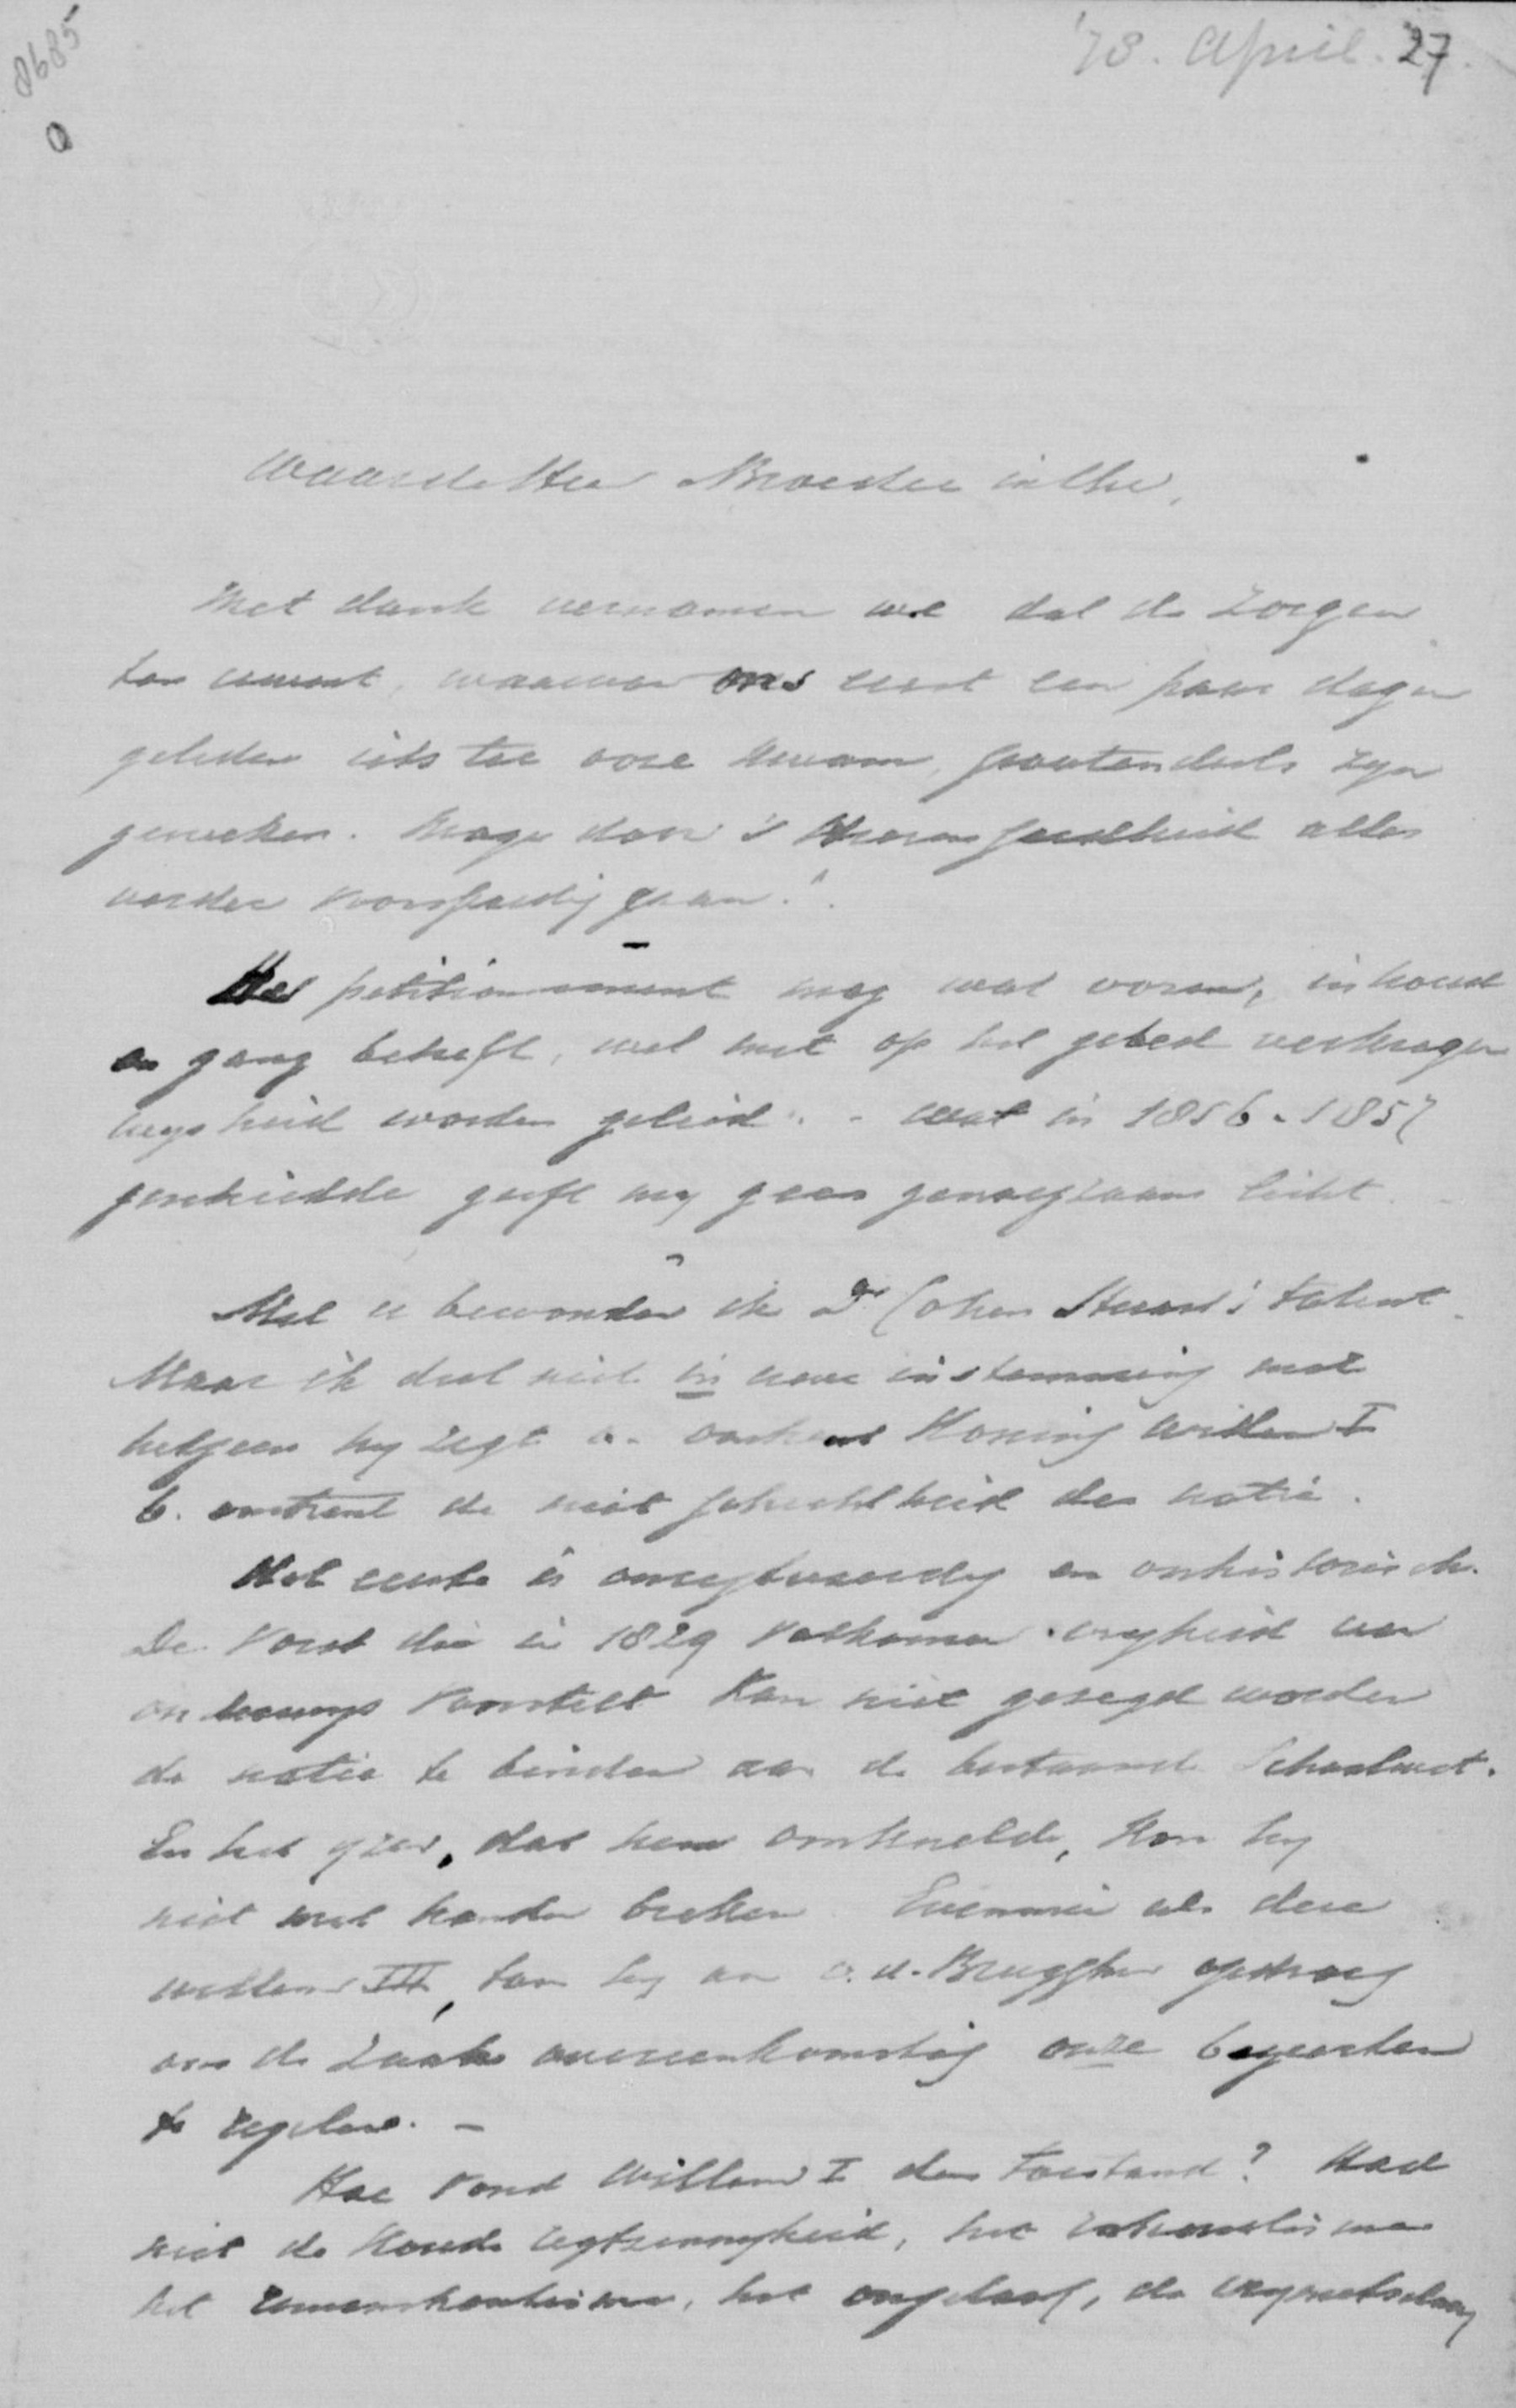 8685
'78. April. 27.
Waarde Heer Broeder in Chr.
Met dank vernamen we dat de zorgen
ten uwent, waarvan ons eerst een paar dagen
geleden iets ter oore kwam, grootendeels zyn
geweken. Moge door 's Heeren goedheid alles
verder voorspoedig gaan!
Het petitionnement mag wat vorm, inhoud
en gang betreft, wel met op het gebed verkregen
wysheid worden geleid. - Wat in 1856-1857
geschiedde geeft my geen genoegzaam licht.
Met u bewonder ik Dr Cohen Stuart's talent.
Maar ik deel niet in uwe instemming met
hetgeen hy zegt a. omtrent Koning Willem I
b. omtrent de niet gehechtheid der natie.
Het eerste is onregtvaardig en onhistorisch.
De Vorst die in 1829 volkomen vryheid van
onderwys voorstelt kan niet gezegd worden
de natie te binden aan de bestaande Schoolwet.
En het yzer, dat hem omknelde, kon hy
niet met handen breken. Evenmin als deze
Willem III, toen hy aan v.d. Brugghen opdroeg
om de zaak overeenkomstig onze begeerten
te regelen. -
Hoe vond Willem I den toestand? Had
niet de koude regtzinnigheid, het rationalisme
het remonstrantisme, het ongeloof, de vrymetselary